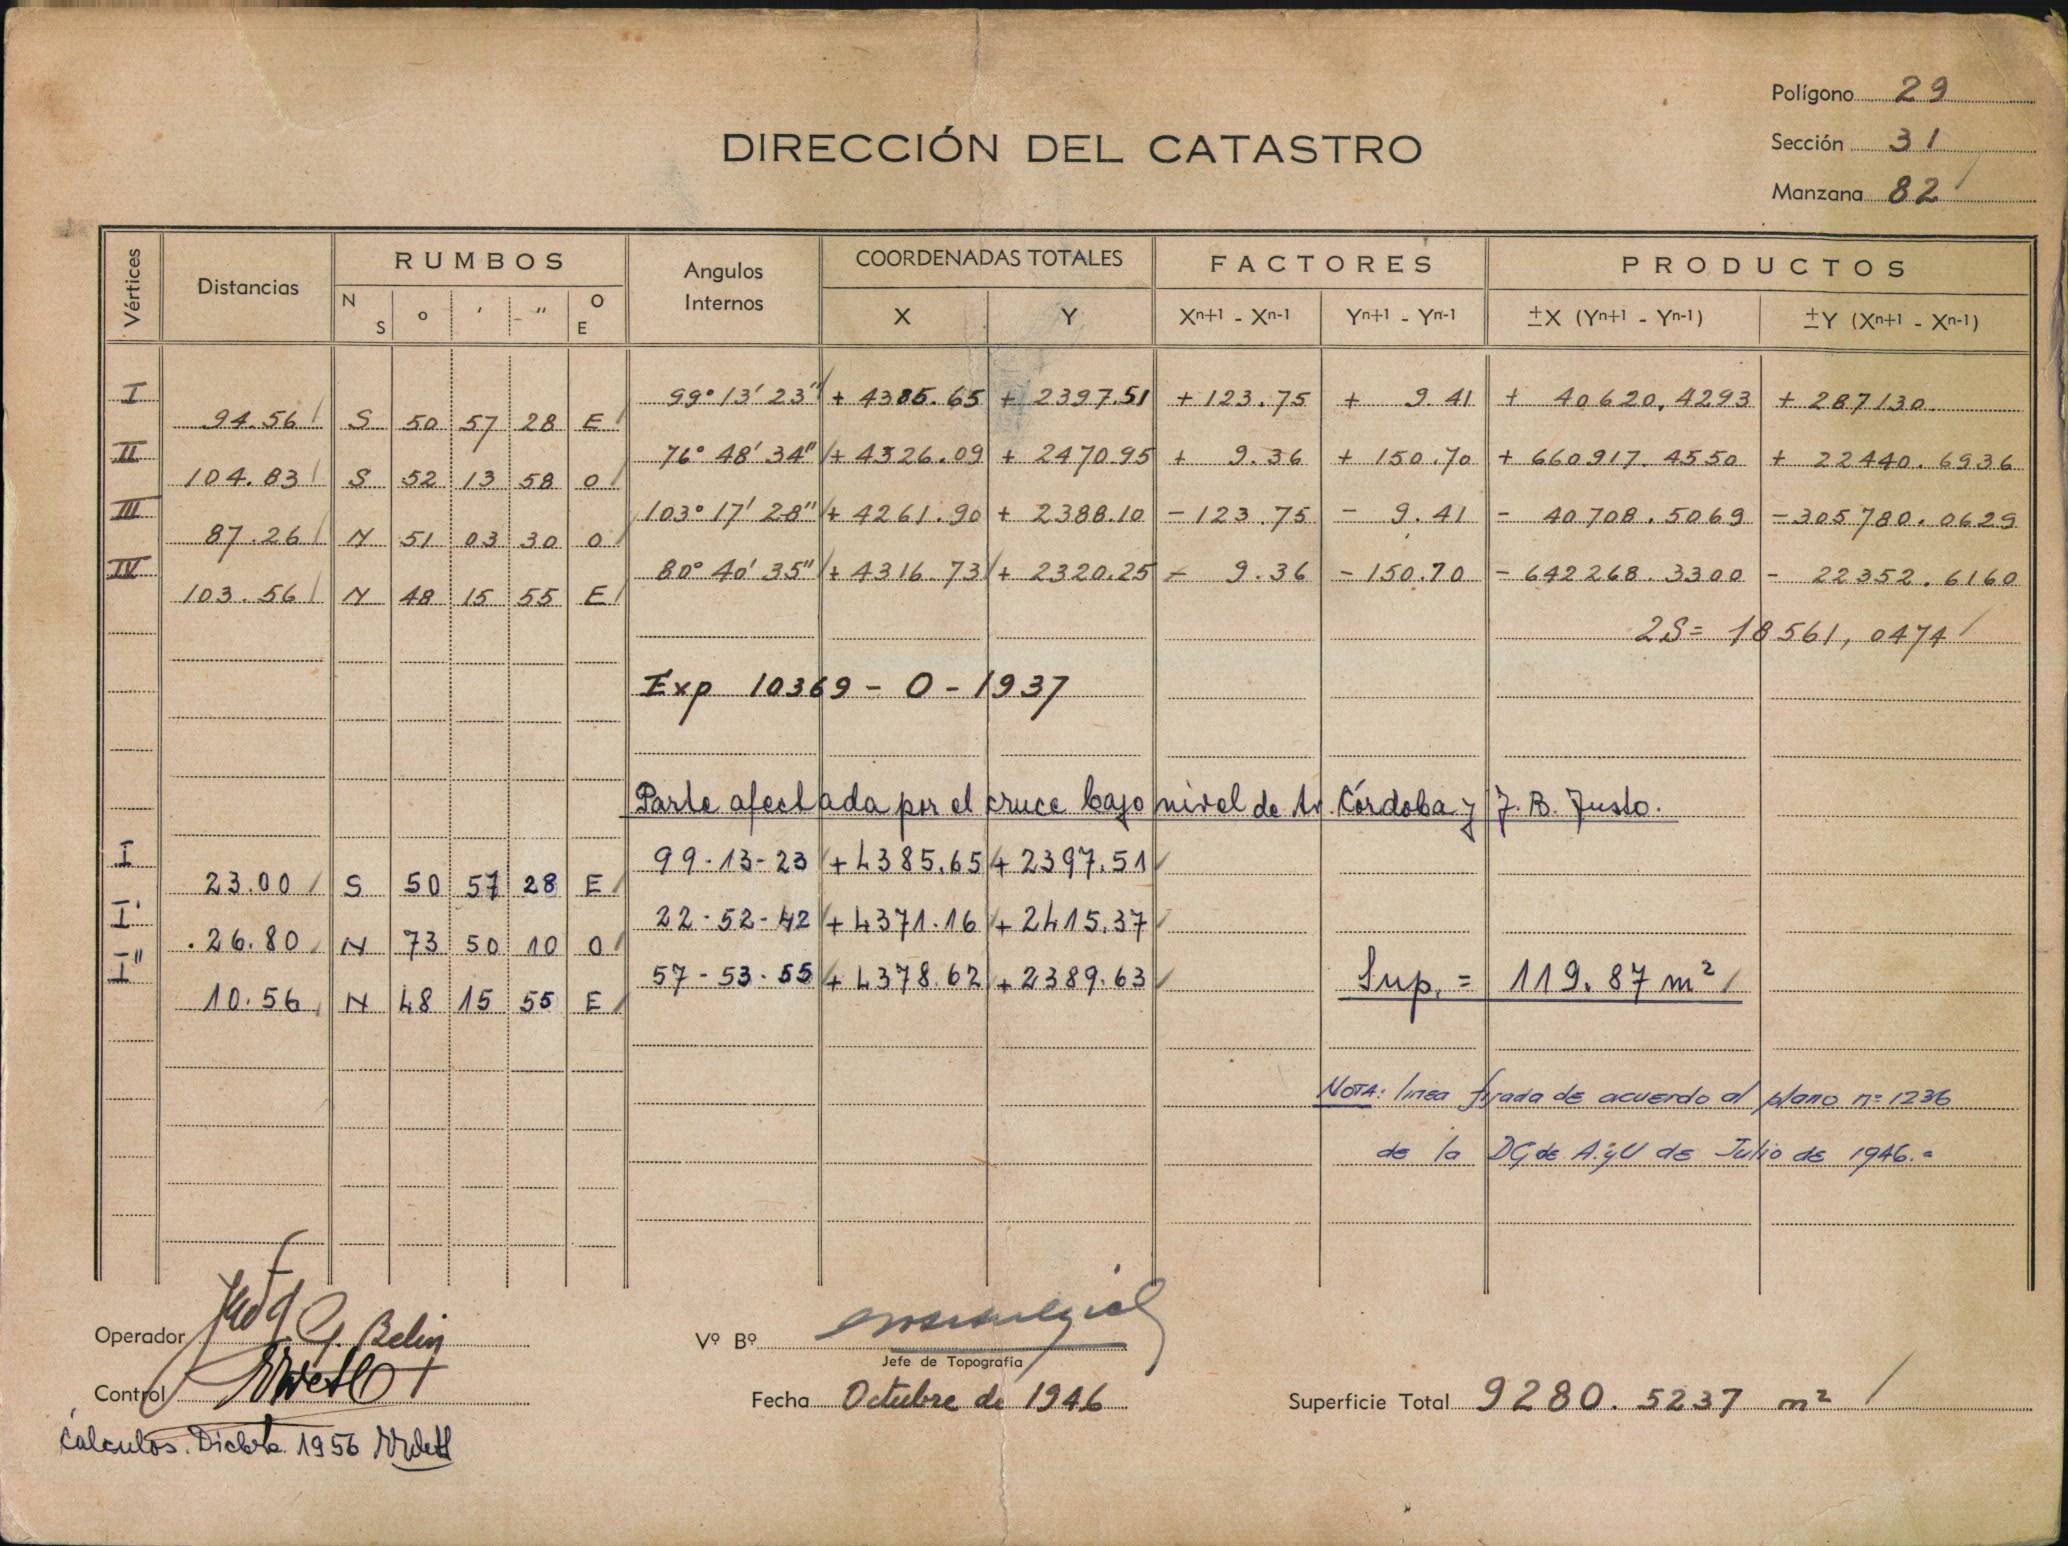 Polígono 29
DIRECCIÓN DEL CATASTRO
Sección 31
Manzana 82
Vértices Distancias RUMBOS Angulos Internos COORDENADAS TOTALES FACTORES PRODUCTOS
N S ° ′ ″ O E X Y Xⁿ⁺¹ - Xⁿ⁻¹ Yⁿ⁺¹ - Yⁿ⁻¹ ±X (Yⁿ⁺¹ - Yⁿ⁻¹) ±Y (Xⁿ⁺¹ - Xⁿ⁻¹)
I 99° 13′ 23″ + 4385.65 + 2397.51 + 123.75 + 9.41 + 40620,4293 + 287130.
94.56 S 50 57 28 E
II 76° 48′ 34″ + 4326.09 + 2470.95 + 9.36 + 150.70 + 660917.4550 + 22440.6936
104.83 S 52 13 58 O
III 103° 17′ 28″ + 4261.90 + 2388.10 - 123.75 - 9.41 - 40708.5069 - 305780.0629
87.26 N 51 03 30 O
IV 80° 40′ 35″ + 4316.73 + 2320.25 - 9.36 - 150.70 - 642268.3300 - 22352.6160
103.56 N 48 15 55 E
2S = 18561,0474
Exp 10369 - O - 1937
Parte afectada por el cruce bajo nivel de Av. Córdoba y J. B. Justo.
I 99-13-23 + 4385.65 + 2397.51
23.00 S 50 57 28 E
I' 22-52-42 + 4371.16 + 2415.37
26.80 N 73 50 10 O
I" 57-53-55 + 4378.62 + 2389.63 Sup. = 119.87 m²
10.56 N 48 15 55 E
NOTA: línea fijada de acuerdo al plano nº 1236
de la DG de A. y U de Julio de 1946.=
Operador G. Belin
Vº Bº
Jefe de Topografía
Control
Fecha Octubre de 1946
Superficie Total 9280.5237 m²
Cálculos. Dicbre 1956